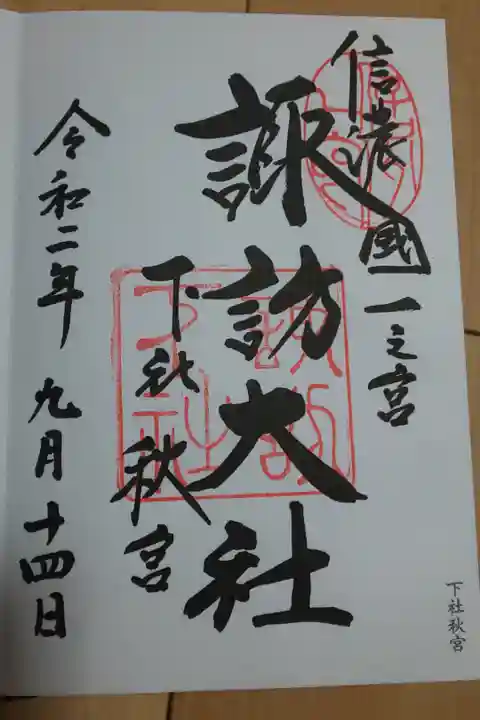 信濃國一之宮
諏訪大社
下社秋宮
令和二年 九月十四日
下社秋宮